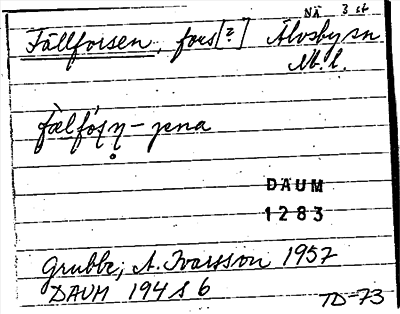 NÄ 3 st
Fällforsen, fors[?] Älvsby sn
Nb. l.
fœlfós̥ṇ – ɲena
DAUM
1283
Grubbe; A. Ivarsson 1957
DAUM 194 s 6
TD-73